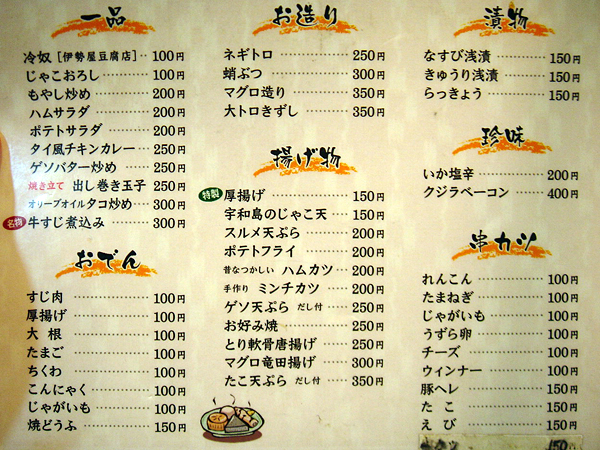 一品
冷奴［伊勢屋豆腐店］‥100円
じゃこおろし………100円
もやし炒め………200円
ハムサラダ………200円
ポテトサラダ………200円
タイ風チキンカレー…250円
ゲソバター炒め……250円
焼き立て 出し巻き玉子 250円
オリーブオイルタコ炒め…300円
名物 牛すじ煮込み……300円
おでん
すじ肉………100円
厚揚げ………100円
大根………100円
たまご………100円
ちくわ………100円
こんにゃく………100円
じゃがいも………100円
焼どうふ………150円
お造り
ネギトロ………250円
蛸ぶつ………300円
マグロ造り………350円
大トロきずし………350円
揚げ物
特製 厚揚げ………150円
宇和島のじゃこ天…150円
スルメ天ぷら………200円
ポテトフライ………200円
昔なつかしい ハムカツ…200円
手作り ミンチカツ…200円
ゲソ天ぷら だし付…250円
お好み焼………250円
とり軟骨唐揚げ……250円
マグロ竜田揚げ……300円
たこ天ぷら だし付…350円
漬物
なすび浅漬………150円
きゅうり浅漬………150円
らっきょう………150円
珍味
いか塩辛………200円
クジラベーコン……400円
串カツ
れんこん………100円
たまねぎ………100円
じゃがいも………100円
うずら卵………100円
チーズ………100円
ウィンナー………100円
豚ヘレ………100円
たこ………150円
えび………150円
150円